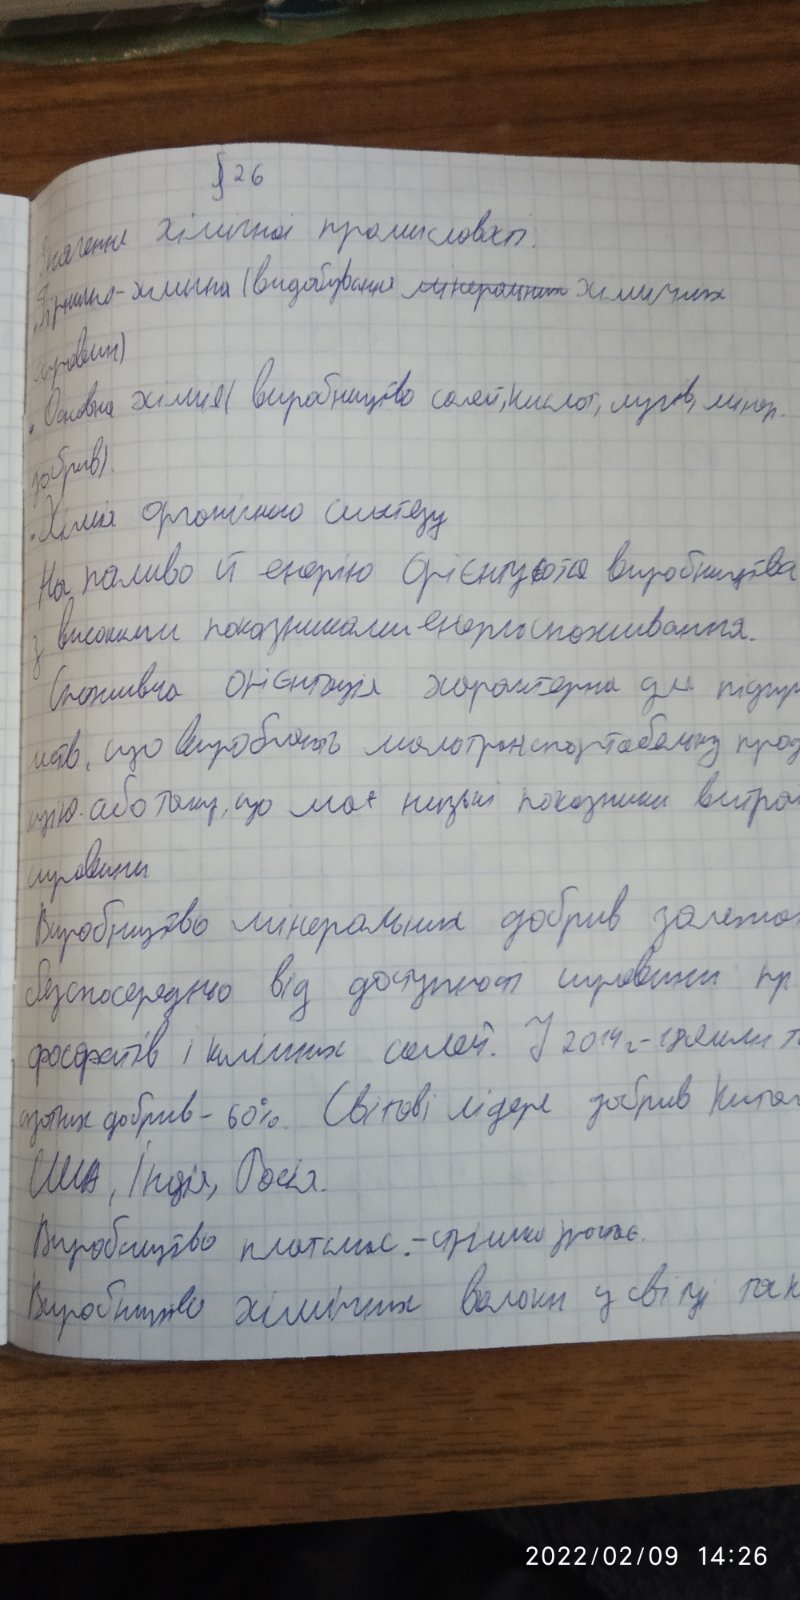 § 26
Значення хімічної промисловості.
Гірничо-хімічна (видобування мінеральних хімічних
сировин)
. Основна хімія( виробництво солей, кислот, лугів, мінер.
добрив).
. Хімія органічного синтезу
На паливо й енергію орієнтуються виробництва
з високими показниками енергоспоживання.
Споживча орієнтація характерна для підпри
мств, що виробляють малотранспортабельну прод
кцію. або таку, що має низькі показники витрат
сировини
Виробництво мінеральних добрив залежа
безпосередньо від доступності сировини пр.
фосфатів і калійних солей. У 2014 г.- та
азотних добрив - 60%. Світові лідери добрив Китай
США, Індія, Росія.
Виробництво пластмас.- стрімко зростає.
Виробництво хімічних волокн у світі так
2022/02/09 14:26